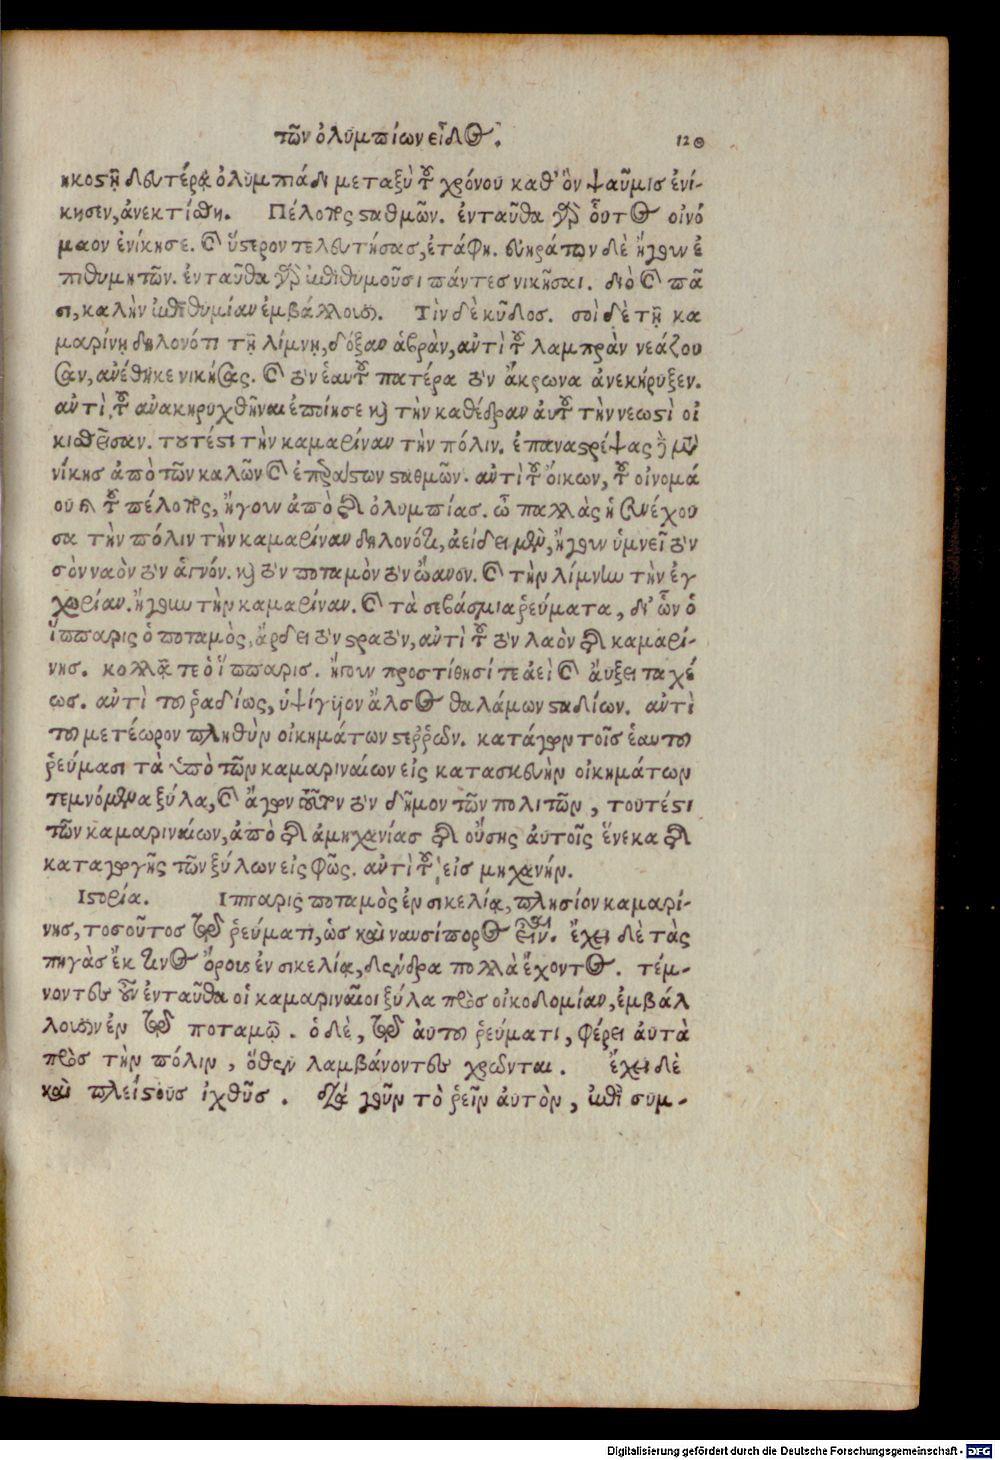 τῶν ὀλυμπίων εἶδος. 129
ηκοστῇ δευτέρᾳ ὀλυμπιάδι μεταξὺ τοῦ χρόνου καθ' ὃν ψαῦμις ἐνί-
κησεν, ἀνεκτίσθη. Πέλοπος σταθμῶν. ἐνταῦθα γὰρ οὗτος οἰνό
μαον ἐνίκησε. καὶ ὕστερον τελευτήσας, ἐτάφη. εὐηράτων δὲ ἤγουν ἐ
πιθυμητῶν. ἐνταῦθα γὰρ ἐπιθυμοῦσι πάντες νικῆσαι. διὸ καὶ πᾶ
σι, καλὴν ἐπιθυμίαν ἐμβάλλουσι. Τὶν δὲ κῦδος. σοὶ δὲ τῇ κα
μαρίνῃ δηλονότι τῇ λίμνῃ, δόξαν ἁβρὰν, αὐτὶ τοῦ λαμπρὰν νεάζου
σαν, ἀνέθηκε νικήσας. καὶ τὸν ἑαυτοῦ πατέρα τὸν ἄκρωνα ἀνεκήρυξεν.
αὐτὶ τοῦ ἀνακηρυχθῆναι ἐποίησε καὶ τὴν καθέδραν αὐτοῦ τὴν νεωστὶ οἰ
κισθεῖσαν. τουτέστι τὴν καμαρίναν τὴν πόλιν. ἐπαναστρέψας γὰρ μετὰ
νίκης ἀπὸ τῶν καλῶν καὶ ἐπεράστων σταθμῶν. αὐτὶ τοῦ οἴκων, τοῦ οἰνομά
ου καὶ τοῦ πέλοπος, ἤγουν ἀπὸ τῆς ὀλυμπίας. ὦ παλλὰς ἡ συνέχου
σα τὴν πόλιν τὴν καμαρίναν δηλονότι, ἀείδει μὲν, ἤγουν ὑμνεῖ τὸν
σὸν ναὸν τὸν ἁγνόν. καὶ τὸν ποταμὸν τὸν ὤανον. καὶ τὴν λίμνην τὴν ἐγ
χωρίαν. ἤγουν τὴν καμαρίναν. καὶ τὰ σεβάσμια ῥεύματα, δι' ὧν ὁ
ἵππαρις ὁ ποταμὸς, ἄρδει τὸν στρατὸν, αὐτὶ τοῦ τὸν λαὸν τῆς καμαρί-
νης. κολλᾷ τε ὁ ἵππαρις. ἤγουν προστίθησί τε ἀεὶ καὶ αὔξει ταχέ
ως. αὐτὶ του ῥαδίως, ὑψίγυιον ἄλσος θαλάμων σταδίων. αὐτὶ
του μετέωρον πληθὺν οἰκημάτων στερρῶν. κατάγων τοῖς ἑαυτου
ῥεύμασι τὰ ὑπὸ τῶν καμαριναίων εἰς κατασκευὴν οἰκημάτων
τεμνόμενα ξύλα, καὶ ἄγων τοῦτον τὸν δῆμον τῶν πολιτῶν, τουτέστι
τῶν καμαριναίων, ἀπὸ τῆς ἀμηχανίας τῆς οὔσης αὐτοῖς ἕνεκα τῆς
καταγωγῆς τῶν ξύλων εἰς φῶς. αὐτὶ τοῦ εἰς μηχανήν.
Ιστορία. Ιππαρις ποταμὸς ἐν σικελίᾳ, πλησίον καμαρί-
νης, τοσοῦτος τῷ ῥεύματι, ὡς καὶ ναυσίπορος εἶναι. ἔχει δὲ τὰς
πηγὰς ἔκ τινος ὄρους ἐν σικελίᾳ, δένδρα πολλὰ ἔχοντος. τέμ-
νοντες οὖν ἐνταῦθα οἱ καμαριναῖοι ξύλα πρὸς οἰκοδομίαν, ἐμβάλ
λουσιν ἐν τῷ ποταμῷ. ὁ δὲ, τῷ αὐτου ῥεύματι, φέρει αὐτὰ
πρὸς τὴν πόλιν, ὅθεν λαμβάνοντες χρῶνται. ἔχει δὲ
καὶ πλείστους ἰχθῦς. διὰ γοῦν τὸ ῥεῖν αὐτὸν, ἐπὶ συμ-
Digitalisierung gefördert durch die Deutsche Forschungsgemeinschaft - DFG